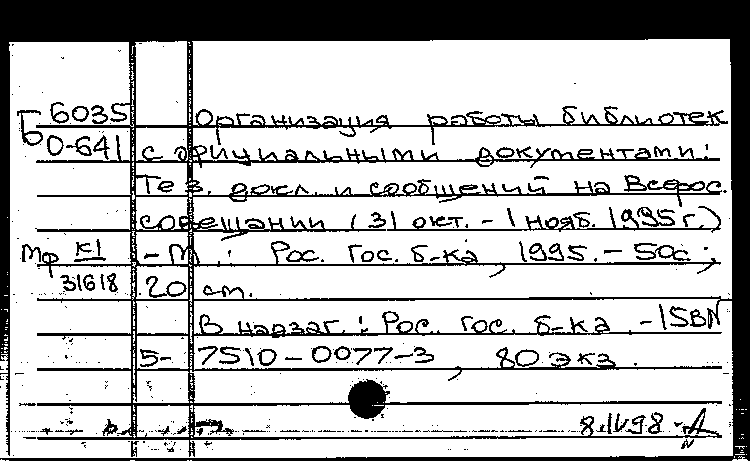 Б 6035 Организация работы библиотек
0-641 с официальными документами:
Тез. докл. и сообщений на Всерос.
совещании (31 окт. - 1 нояб. 1995 г.)
Мф К1 - М.: Рос. гос. б-ка, 1995. - 50с.;
31618 20 см.
В надзаг.: Рос. гос. б-ка. - ISBN
5-7510-0077-3, 80 экз.
8.IV98